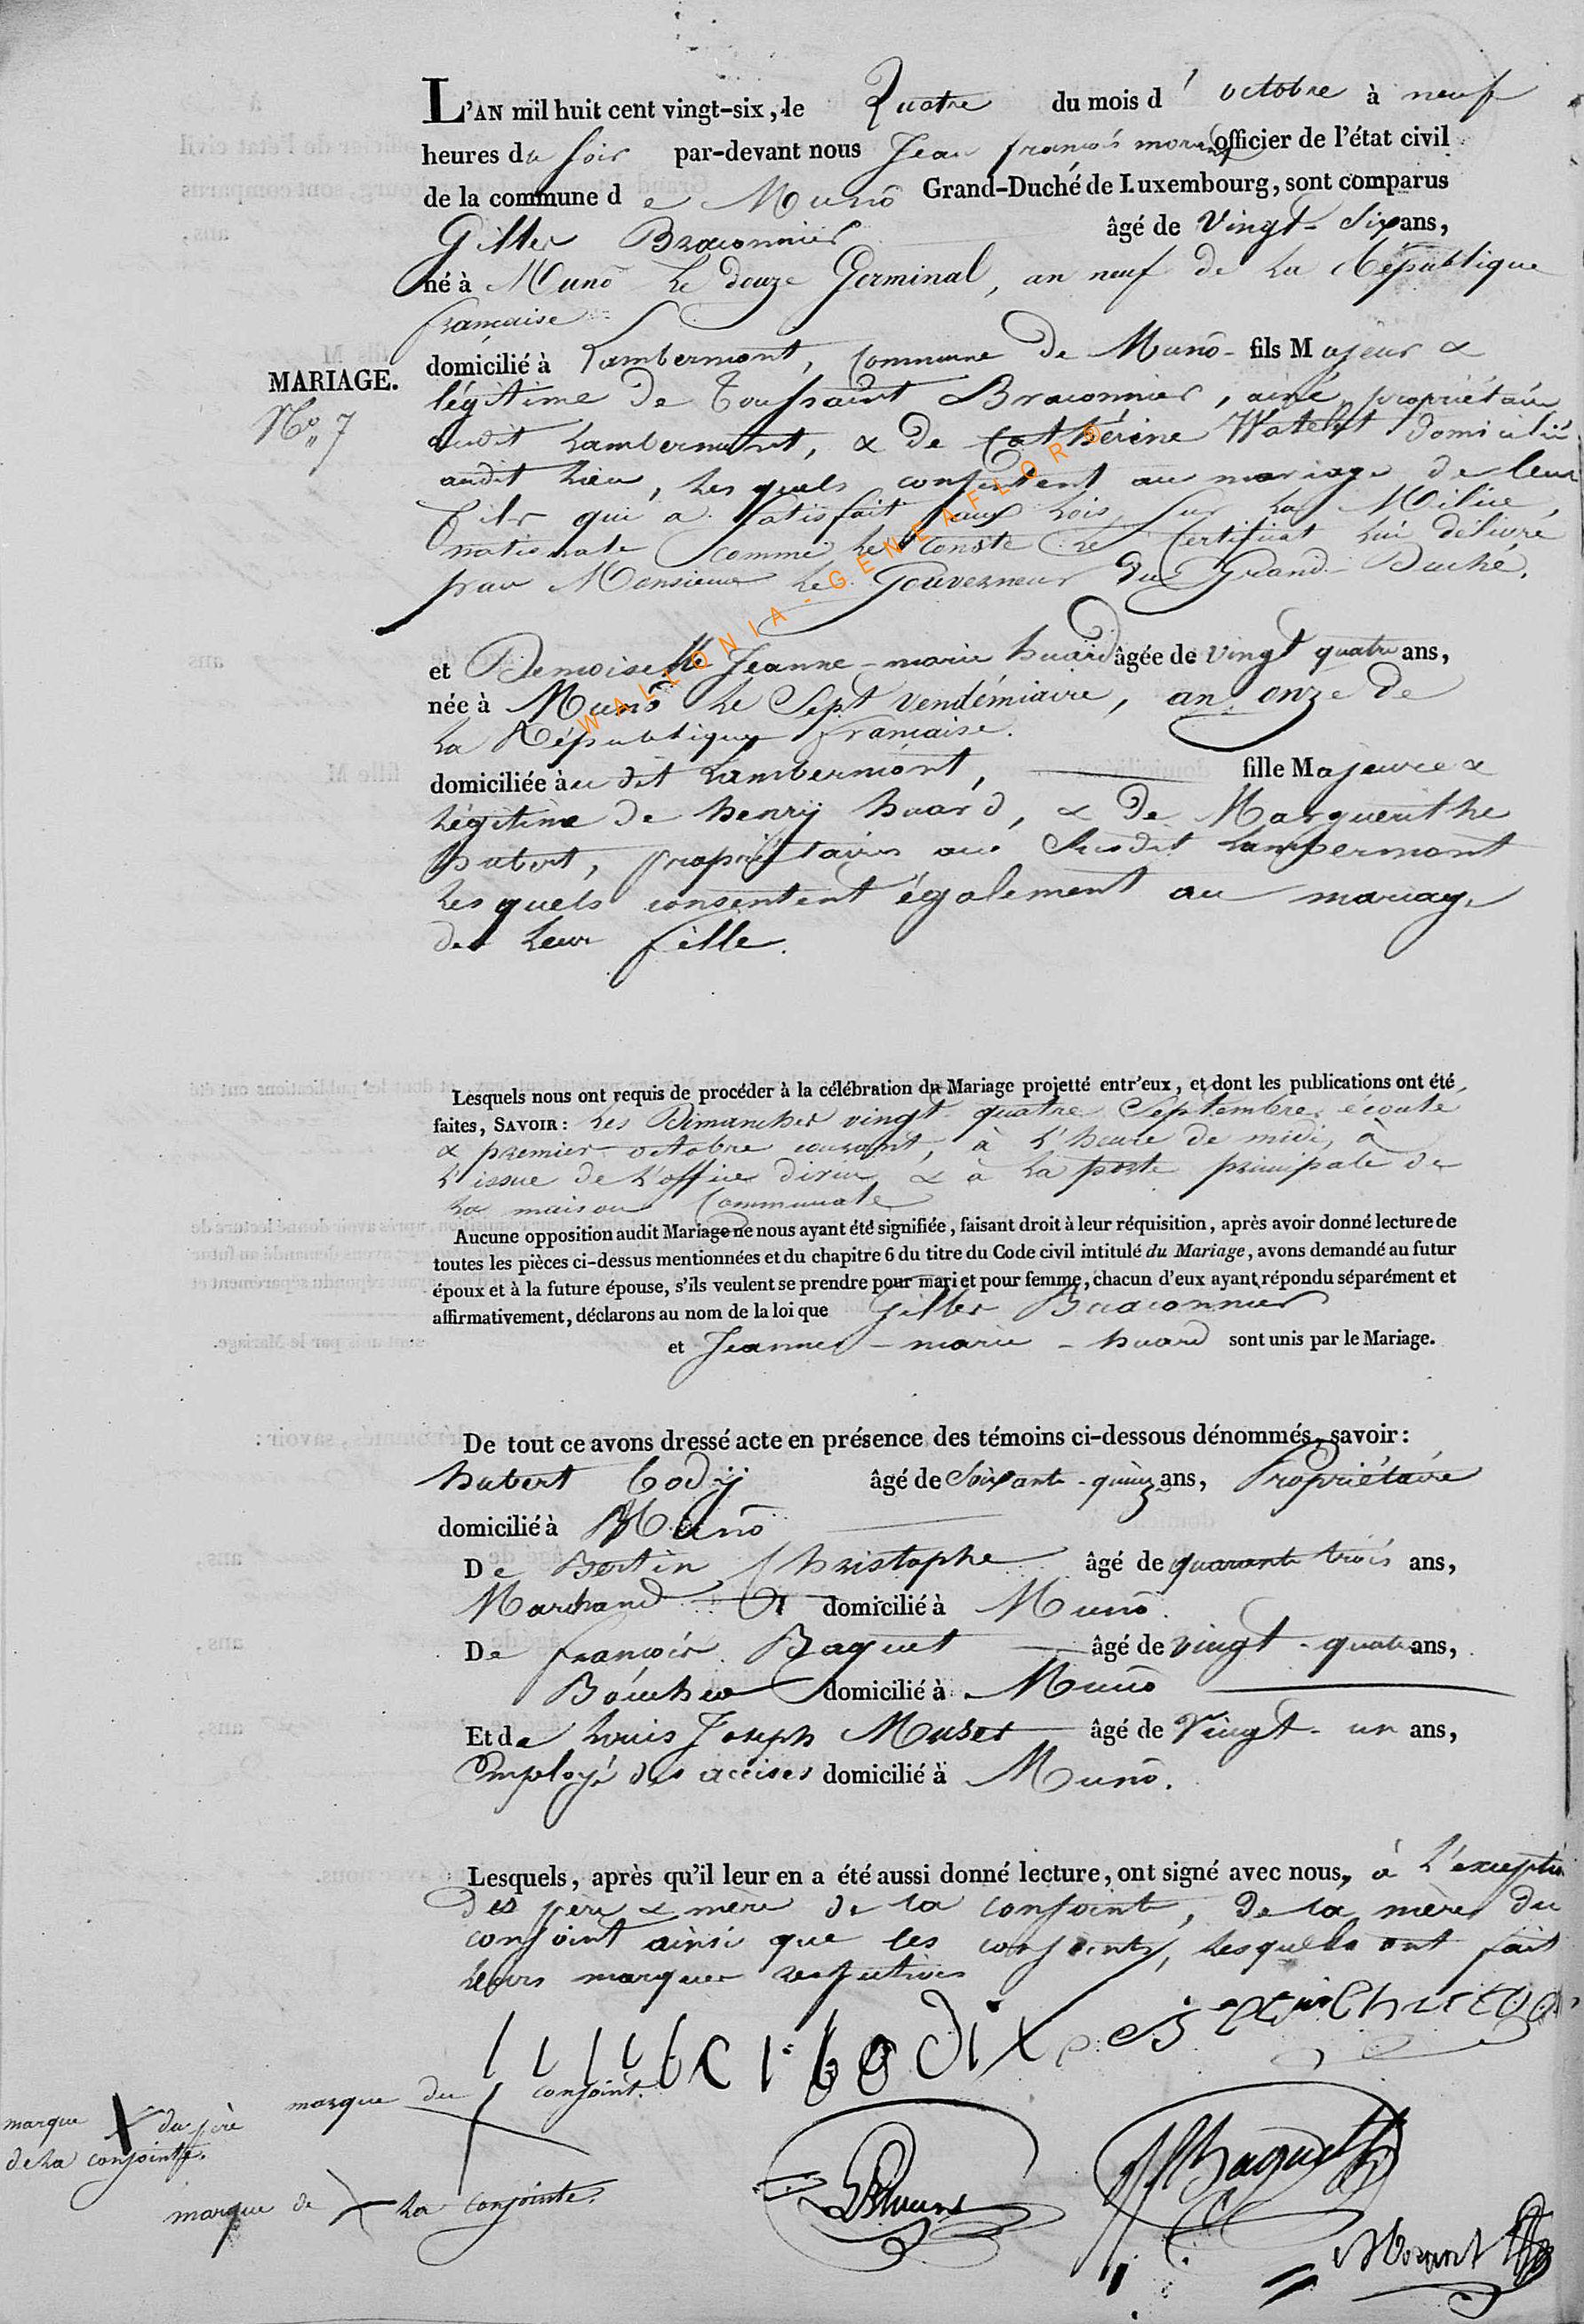 L'AN mil huit cent vingt-six, le Quatre du mois d' octobre à neuf
heures du soir par-devant nous Jean françois morant officier de l'état civil
de la commune d e Muno Grand-Duché de Luxembourg, sont comparus
Gilles Braconnier âgé de Vingt-Six ans,
né à Muno le douze Germinal, an neuf de la République
française
domicilié à Lambermont, Commune de Muno - fils Majeur &
MARIAGE.
N° 7
légitime de Toussaint Braconnier, ainé, propriétaire
audit Lambermont, & de Cathérine Watelet domiciliés
audit lieu, les quels consentent au mariage de leur
fils qui a satisfait aux lois sur la Milice
nationale comme le conste le Certificat lui délivré
par Monsieur le Gouverneur du Grand-Duché.
et Demoiselle Jeanne-marie huard âgée de vingt quatre ans,
née à Muno le Sept Vendémiaire, an onze de
la République française.
domiciliée à u dit Lambermont, fille Majeure &
légitime de henry huard, & de Marguerithe
hubert, propriétaires au Susdit Lambermont
lesquels consentent également au mariage
de leur fille.
Lesquels nous ont requis de procéder à la célébration du Mariage projetté entr'eux, et dont les publications ont été
faites, SAVOIR: les Dimanches vingt-quatre Septembre écoulé
& premier octobre courant, à l'heure de midi, à
l'issue de l'office divin & à la porte principale de
la maison Communale
Aucune opposition audit Mariage ne nous ayant été signifiée, faisant droit à leur réquisition, après avoir donné lecture de
toutes les pièces ci-dessus mentionnées et du chapitre 6 du titre du Code civil intitulé du Mariage, avons demandé au futur
époux et à la future épouse, s'ils veulent se prendre pour mari et pour femme, chacun d'eux ayant répondu séparément et
affirmativement, déclarons au nom de la loi que Gilles Braconnier
et Jeanne-marie-huard sont unis par le Mariage.
De tout ce avons dressé acte en présence des témoins ci-dessous dénommés, savoir:
hubert Godij âgé de Soixante-quinze ans, Propriétaire
domicilié à Muno
De Bertin Christophe âgé de quarante trois ans,
Marchand domicilié à Muno.
De françois Baquet âgé de vingt-quatre ans,
Boucher domicilié à Muno
Et de Louis Joseph Muser âgé de Vingt-un ans,
Employé des accises domicilié à Muno.
Lesquels, après qu'il leur en a été aussi donné lecture, ont signé avec nous, à l'exception
des père & mère de la conjointe, de la mère du
conjoint ainsi que les conjoints, lesquels ont fait
leurs marques respectives
marque du conjoint.
marque du père
de la conjointe.
marque de la conjointe.
Baquet
Morant
WALLONIA-GENEAFLORE